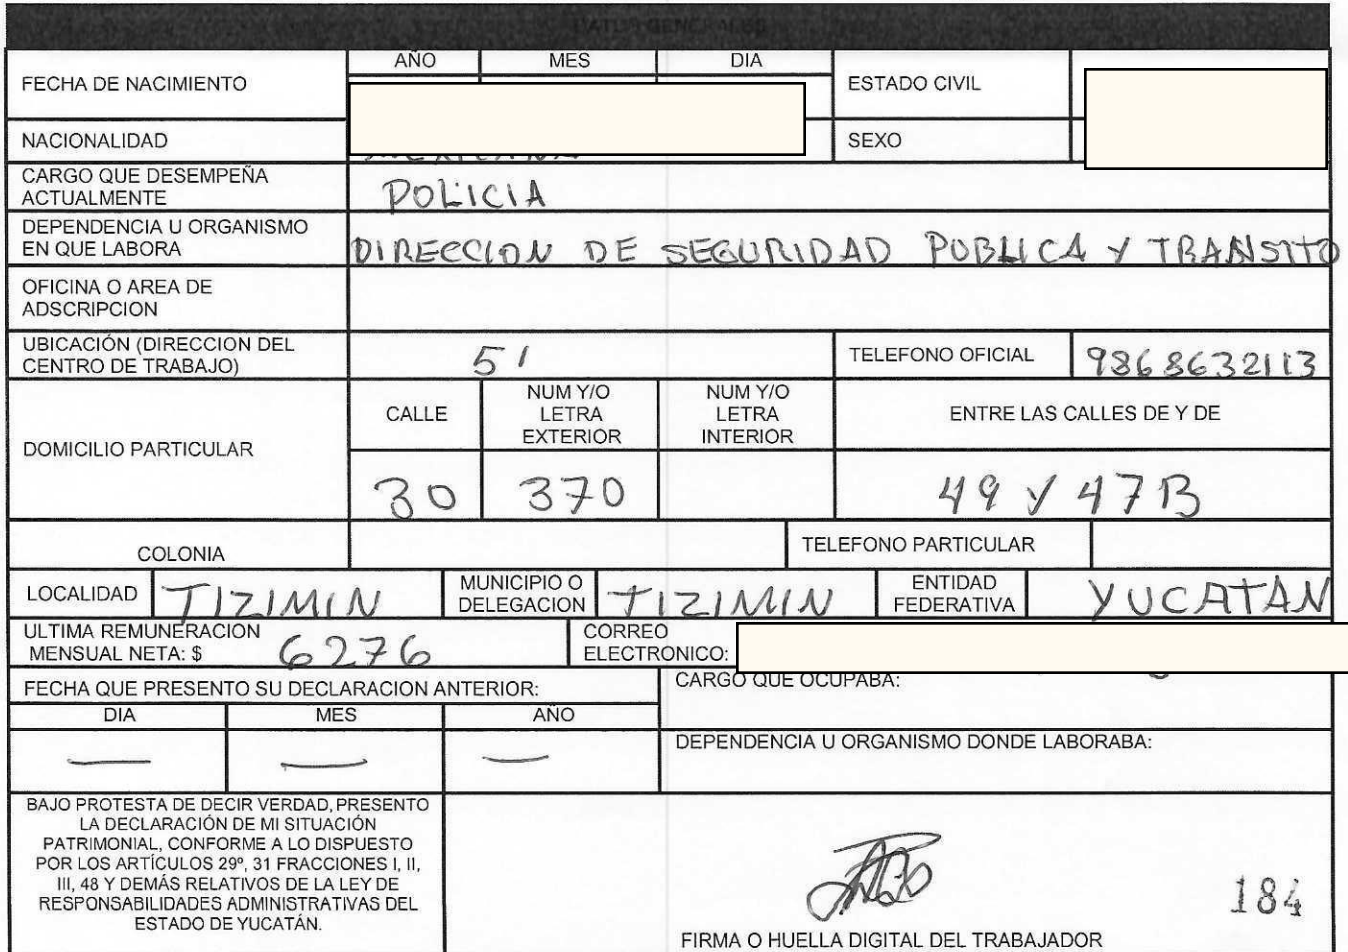 DATOS GENERALES
FECHA DE NACIMIENTO
AÑO MES DIA
ESTADO CIVIL
NACIONALIDAD
SEXO
CARGO QUE DESEMPEÑA
ACTUALMENTE
POLICIA
DEPENDENCIA U ORGANISMO
EN QUE LABORA
DIRECCION DE SEGURIDAD PUBLICA Y TRANSITO
OFICINA O AREA DE
ADSCRIPCION
UBICACIÓN (DIRECCION DEL
CENTRO DE TRABAJO)
51
TELEFONO OFICIAL 9868632113
DOMICILIO PARTICULAR
CALLE
NUM Y/O
LETRA
EXTERIOR
NUM Y/O
LETRA
INTERIOR
ENTRE LAS CALLES DE Y DE
30 370 49 Y 47B
COLONIA
TELEFONO PARTICULAR
LOCALIDAD TIZIMIN
MUNICIPIO O
DELEGACION
TIZIMIN
ENTIDAD
FEDERATIVA
YUCATAN
ULTIMA REMUNERACION
MENSUAL NETA: $ 6276
CORREO
ELECTRONICO:
FECHA QUE PRESENTO SU DECLARACION ANTERIOR:
CARGO QUE OCUPABA:
DIA MES AÑO
— — —
DEPENDENCIA U ORGANISMO DONDE LABORABA:
BAJO PROTESTA DE DECIR VERDAD, PRESENTO
LA DECLARACIÓN DE MI SITUACIÓN
PATRIMONIAL, CONFORME A LO DISPUESTO
POR LOS ARTÍCULOS 29º, 31 FRACCIONES I, II,
III, 48 Y DEMÁS RELATIVOS DE LA LEY DE
RESPONSABILIDADES ADMINISTRATIVAS DEL
ESTADO DE YUCATÁN.
184
FIRMA O HUELLA DIGITAL DEL TRABAJADOR